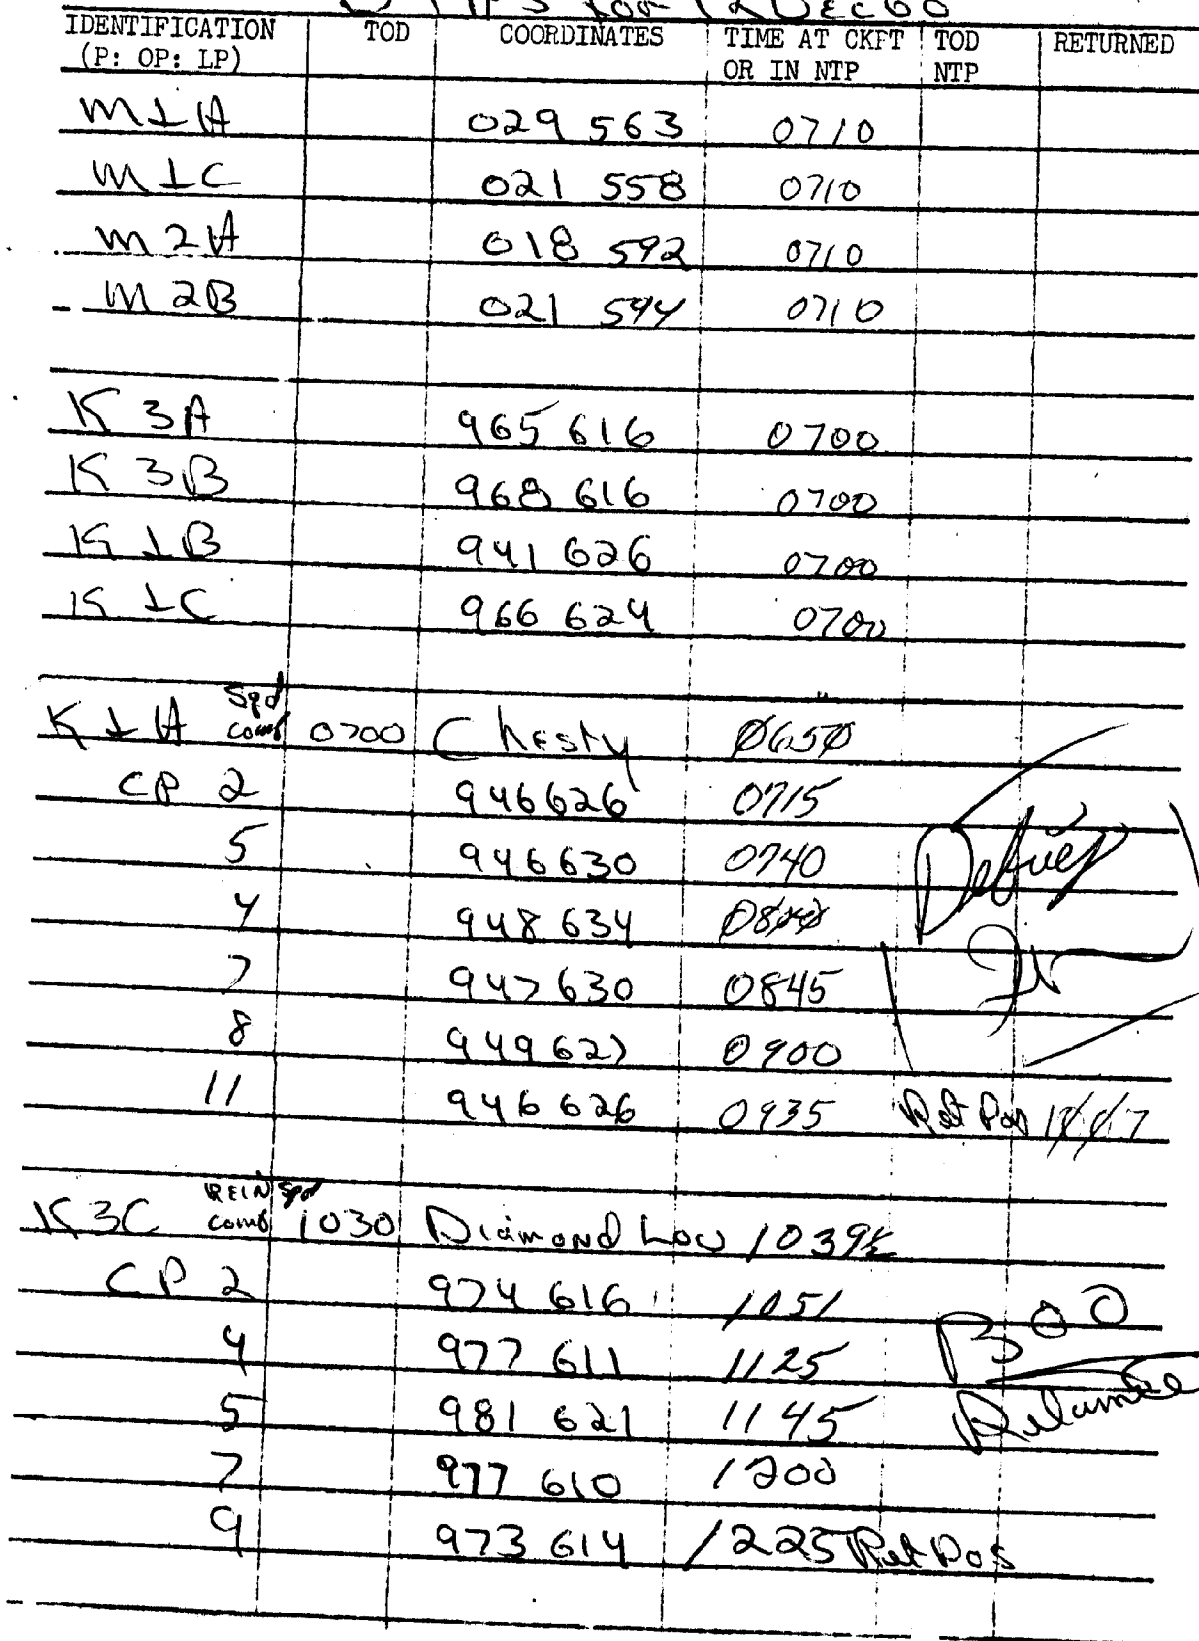 for 12 Dec 66
IDENTIFICATION (P: OP: LP) TOD COORDINATES TIME AT CKPT OR IN NTP TOD NTP RETURNED
M1A 029 563 0710
M1C 021 558 0710
M2A 018 592 0710
M2B 021 594 0710
K 3A 965 616 0700
K 3B 968 616 0700
K 1B 941 626 0700
K 1C 966 624 0700
K 1A Sqd Comb 0700 Chesty 0650
CP 2 946626 0715
5 946630 0740
4 948 634
7 947630 0845
8 949627 0900
11 946 626 0935 Ret Pos
Debrief
K3C REIN Sqd Comb 1030 Diamond Low 1039
CP 2 974 616 1051
4 977 611 1125
5 981 621 1145
7 977 610 1200
9 973 614 1225 Ret Pos